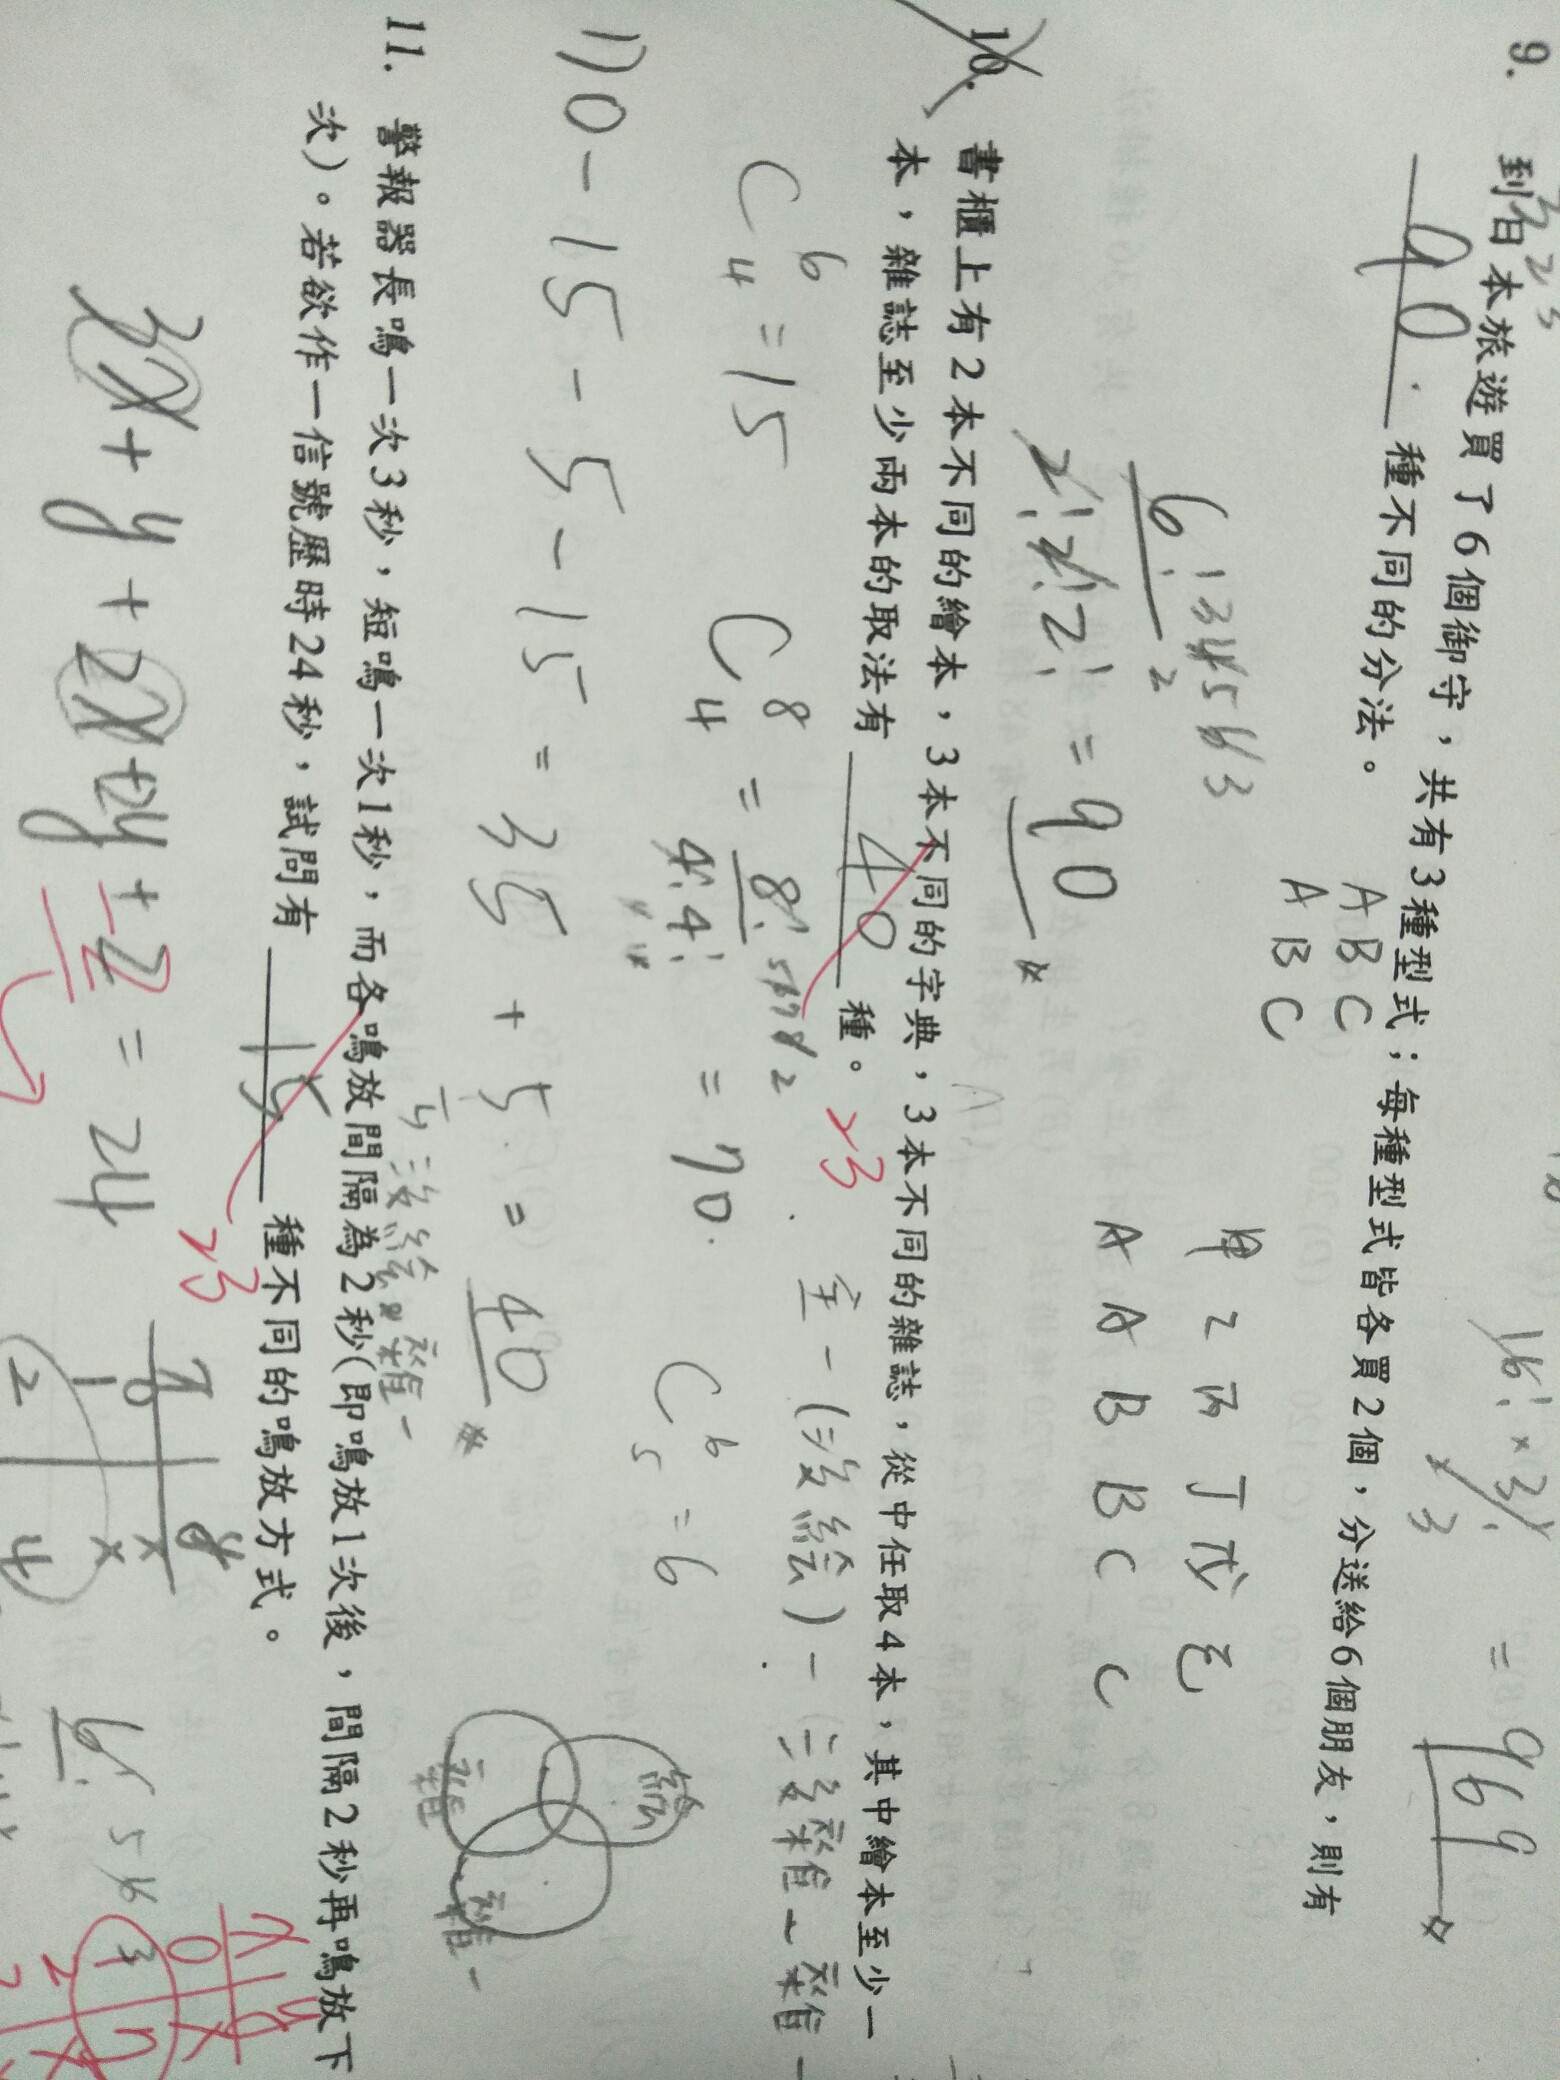 9. 到日本旅遊買了6個御守，共有3種型式；每種型式皆各買2個，分送給6個朋友，則有
90 種不同的分法。
969
A B C
A B C
甲 乙 丙 丁 戊 己
A A B B C C
6!
2!2!2!
= 90
10. 書櫃上有2本不同的繪本，3本不同的字典，3本不同的雜誌，從中任取4本，其中繪本至少一
本，雜誌至少兩本的取法有 40 種。
23
全-(沒繪)-
C 6 4 = 15
C 8 4 = 8! 4!4! = 70
C 6 5 = 6
繪
雜
70-15-5-15 = 35 + 5 = 40
11. 警報器長鳴一次3秒，短鳴一次1秒，而各鳴放間隔為2秒(即鳴放1次後，間隔2秒再鳴放下
次)。若欲作一信號歷時24秒，試問有 15 種不同的鳴放方式。
23
3x + y + 2x + 2y - 2 = 24